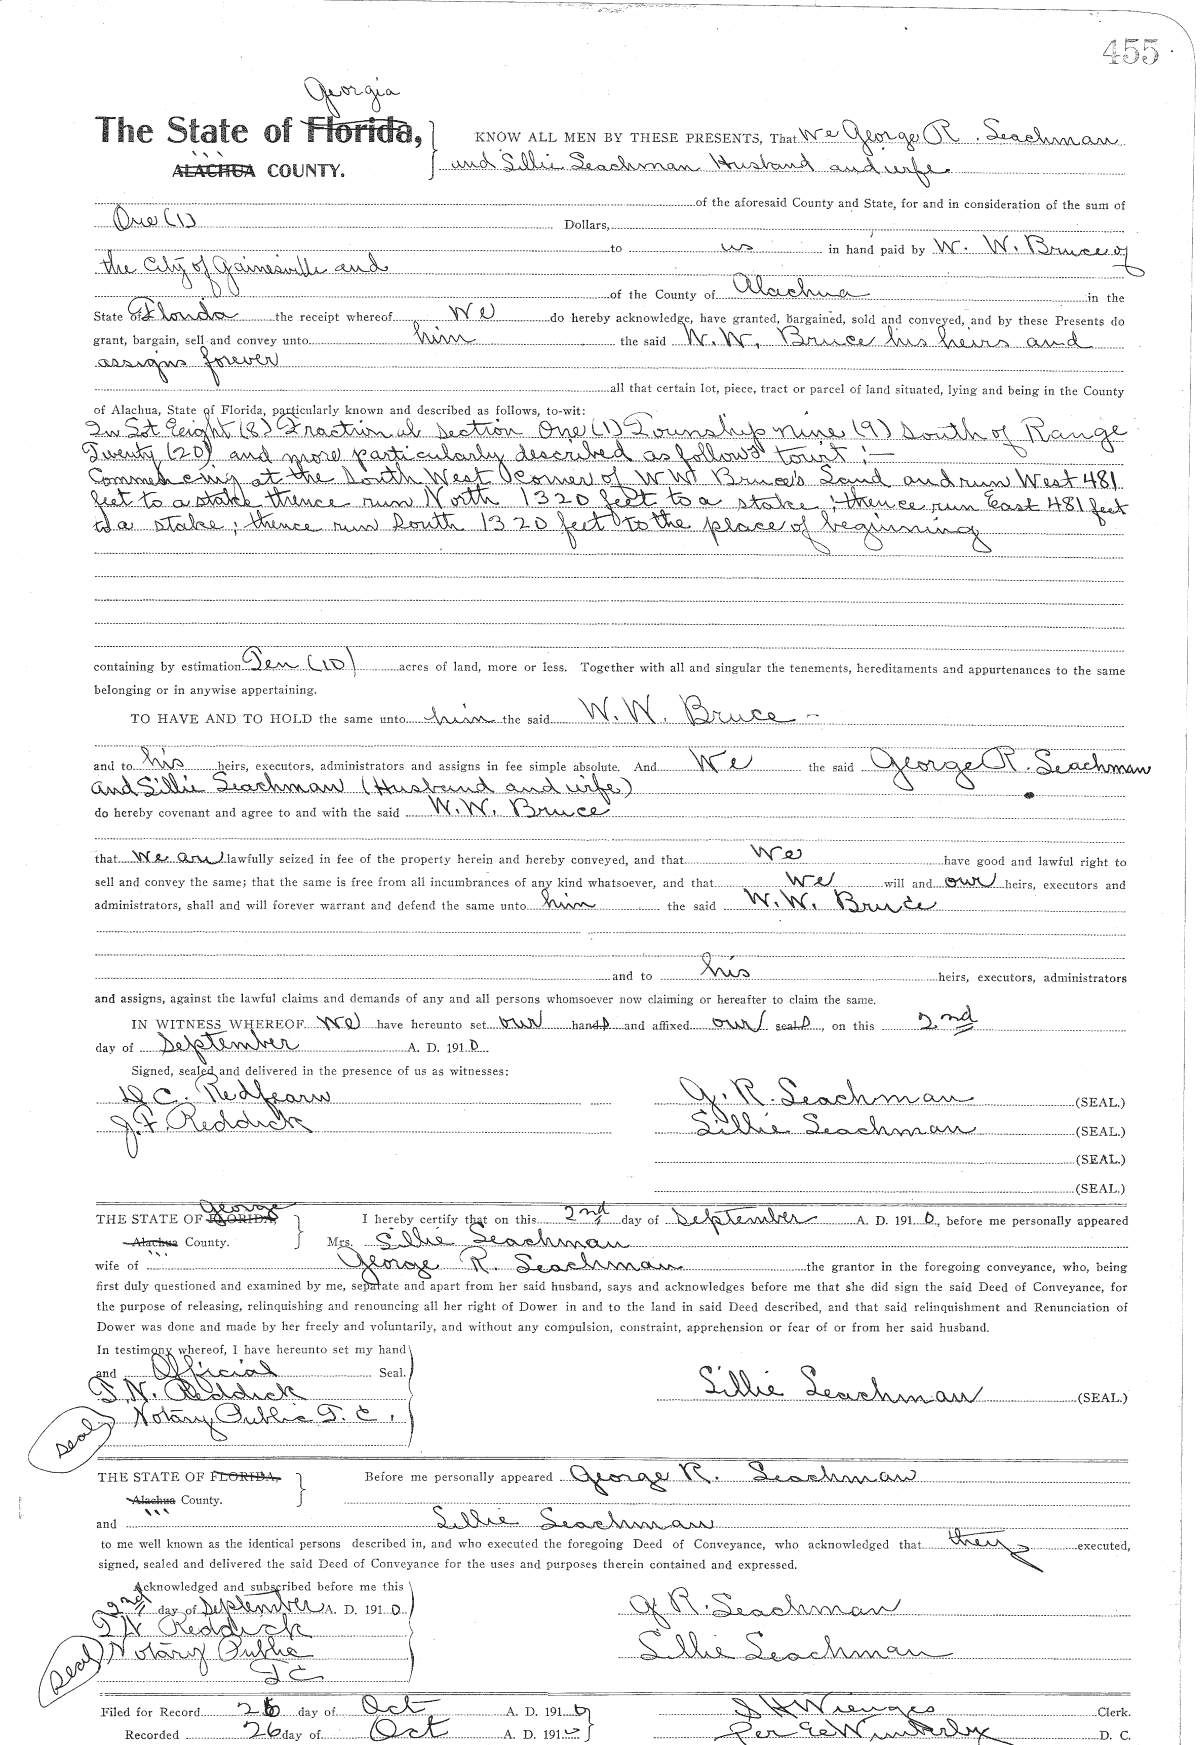 455
Georgia
The State of Florida, } KNOW ALL MEN BY THESE PRESENTS, That We George R. Leachman
ALACHUA COUNTY. and Lillie Leachman Husband and wife
of the aforesaid County and State, for and in consideration of the sum of
One (1) Dollars,
to us in hand paid by W. W. Bruce of
the City of Gainesville and
of the County of Alachua in the
State of Florida the receipt whereof We do hereby acknowledge, have granted, bargained, sold and conveyed, and by these Presents do
grant, bargain, sell and convey unto him the said W. W. Bruce his heirs and
assigns forever
all that certain lot, piece, tract or parcel of land situated, lying and being in the County
of Alachua, State of Florida, particularly known and described as follows, to-wit:
In Lot Eight (8) Fractional section One (1) Township nine (9) South of Range
Twenty (20) and more particularly described as follows towit :—
Commencing at the South West Corner of W W Bruce's Land and run West 481
feet to a stake thence run North 1320 feet to a stake ; thence run East 481 feet
to a stake ; thence run South 1320 feet to the place of beginning
containing by estimation Ten (10) acres of land, more or less. Together with all and singular the tenements, hereditaments and appurtenances to the same
belonging or in anywise appertaining.
TO HAVE AND TO HOLD the same unto him the said W. W. Bruce —
and to his heirs, executors, administrators and assigns in fee simple absolute. And We the said George R. Leachman
and Lillie Leachman (Husband and wife)
do hereby covenant and agree to and with the said W. W. Bruce
that we are lawfully seized in fee of the property herein and hereby conveyed, and that We have good and lawful right to
sell and convey the same; that the same is free from all incumbrances of any kind whatsoever, and that We will and our heirs, executors and
administrators, shall and will forever warrant and defend the same unto him the said W. W. Bruce
and to his heirs, executors, administrators
and assigns, against the lawful claims and demands of any and all persons whomsoever now claiming or hereafter to claim the same.
IN WITNESS WHEREOF We have hereunto set our hands and affixed our seals, on this 2nd
day of September A. D. 1910
Signed, sealed and delivered in the presence of us as witnesses:
D C. Redfearn G. R. Leachman (SEAL.)
J. F Reddick Lillie Leachman (SEAL.)
(SEAL.)
(SEAL.)
George
THE STATE OF FLORIDA } I hereby certify that on this 2nd day of September A. D. 1910, before me personally appeared
Alachua County. Mrs. Lillie Leachman
wife of George R. Leachman the grantor in the foregoing conveyance, who, being
first duly questioned and examined by me, separate and apart from her said husband, says and acknowledges before me that she did sign the said Deed of Conveyance, for
the purpose of releasing, relinquishing and renouncing all her right of Dower in and to the land in said Deed described, and that said relinquishment and Renunciation of
Dower was done and made by her freely and voluntarily, and without any compulsion, constraint, apprehension or fear of or from her said husband.
In testimony whereof, I have hereunto set my hand
and Official Seal.
T. N. Reddick Lillie Leachman (SEAL.)
Seal Notary Public T. C.
THE STATE OF FLORIDA, } Before me personally appeared George R. Leachman
Alachua County.
and Lillie Leachman
to me well known as the identical persons described in, and who executed the foregoing Deed of Conveyance, who acknowledged that they executed,
signed, sealed and delivered the said Deed of Conveyance for the uses and purposes therein contained and expressed.
Acknowledged and subscribed before me this
2nd day of September A. D. 1910 G R. Leachman
T N Reddick
Seal Notary Public Lillie Leachman
T C
Filed for Record 26 day of Oct A. D. 1910 S H Wienges Clerk.
Recorded 26 day of Oct A. D. 1910 } per D. C.